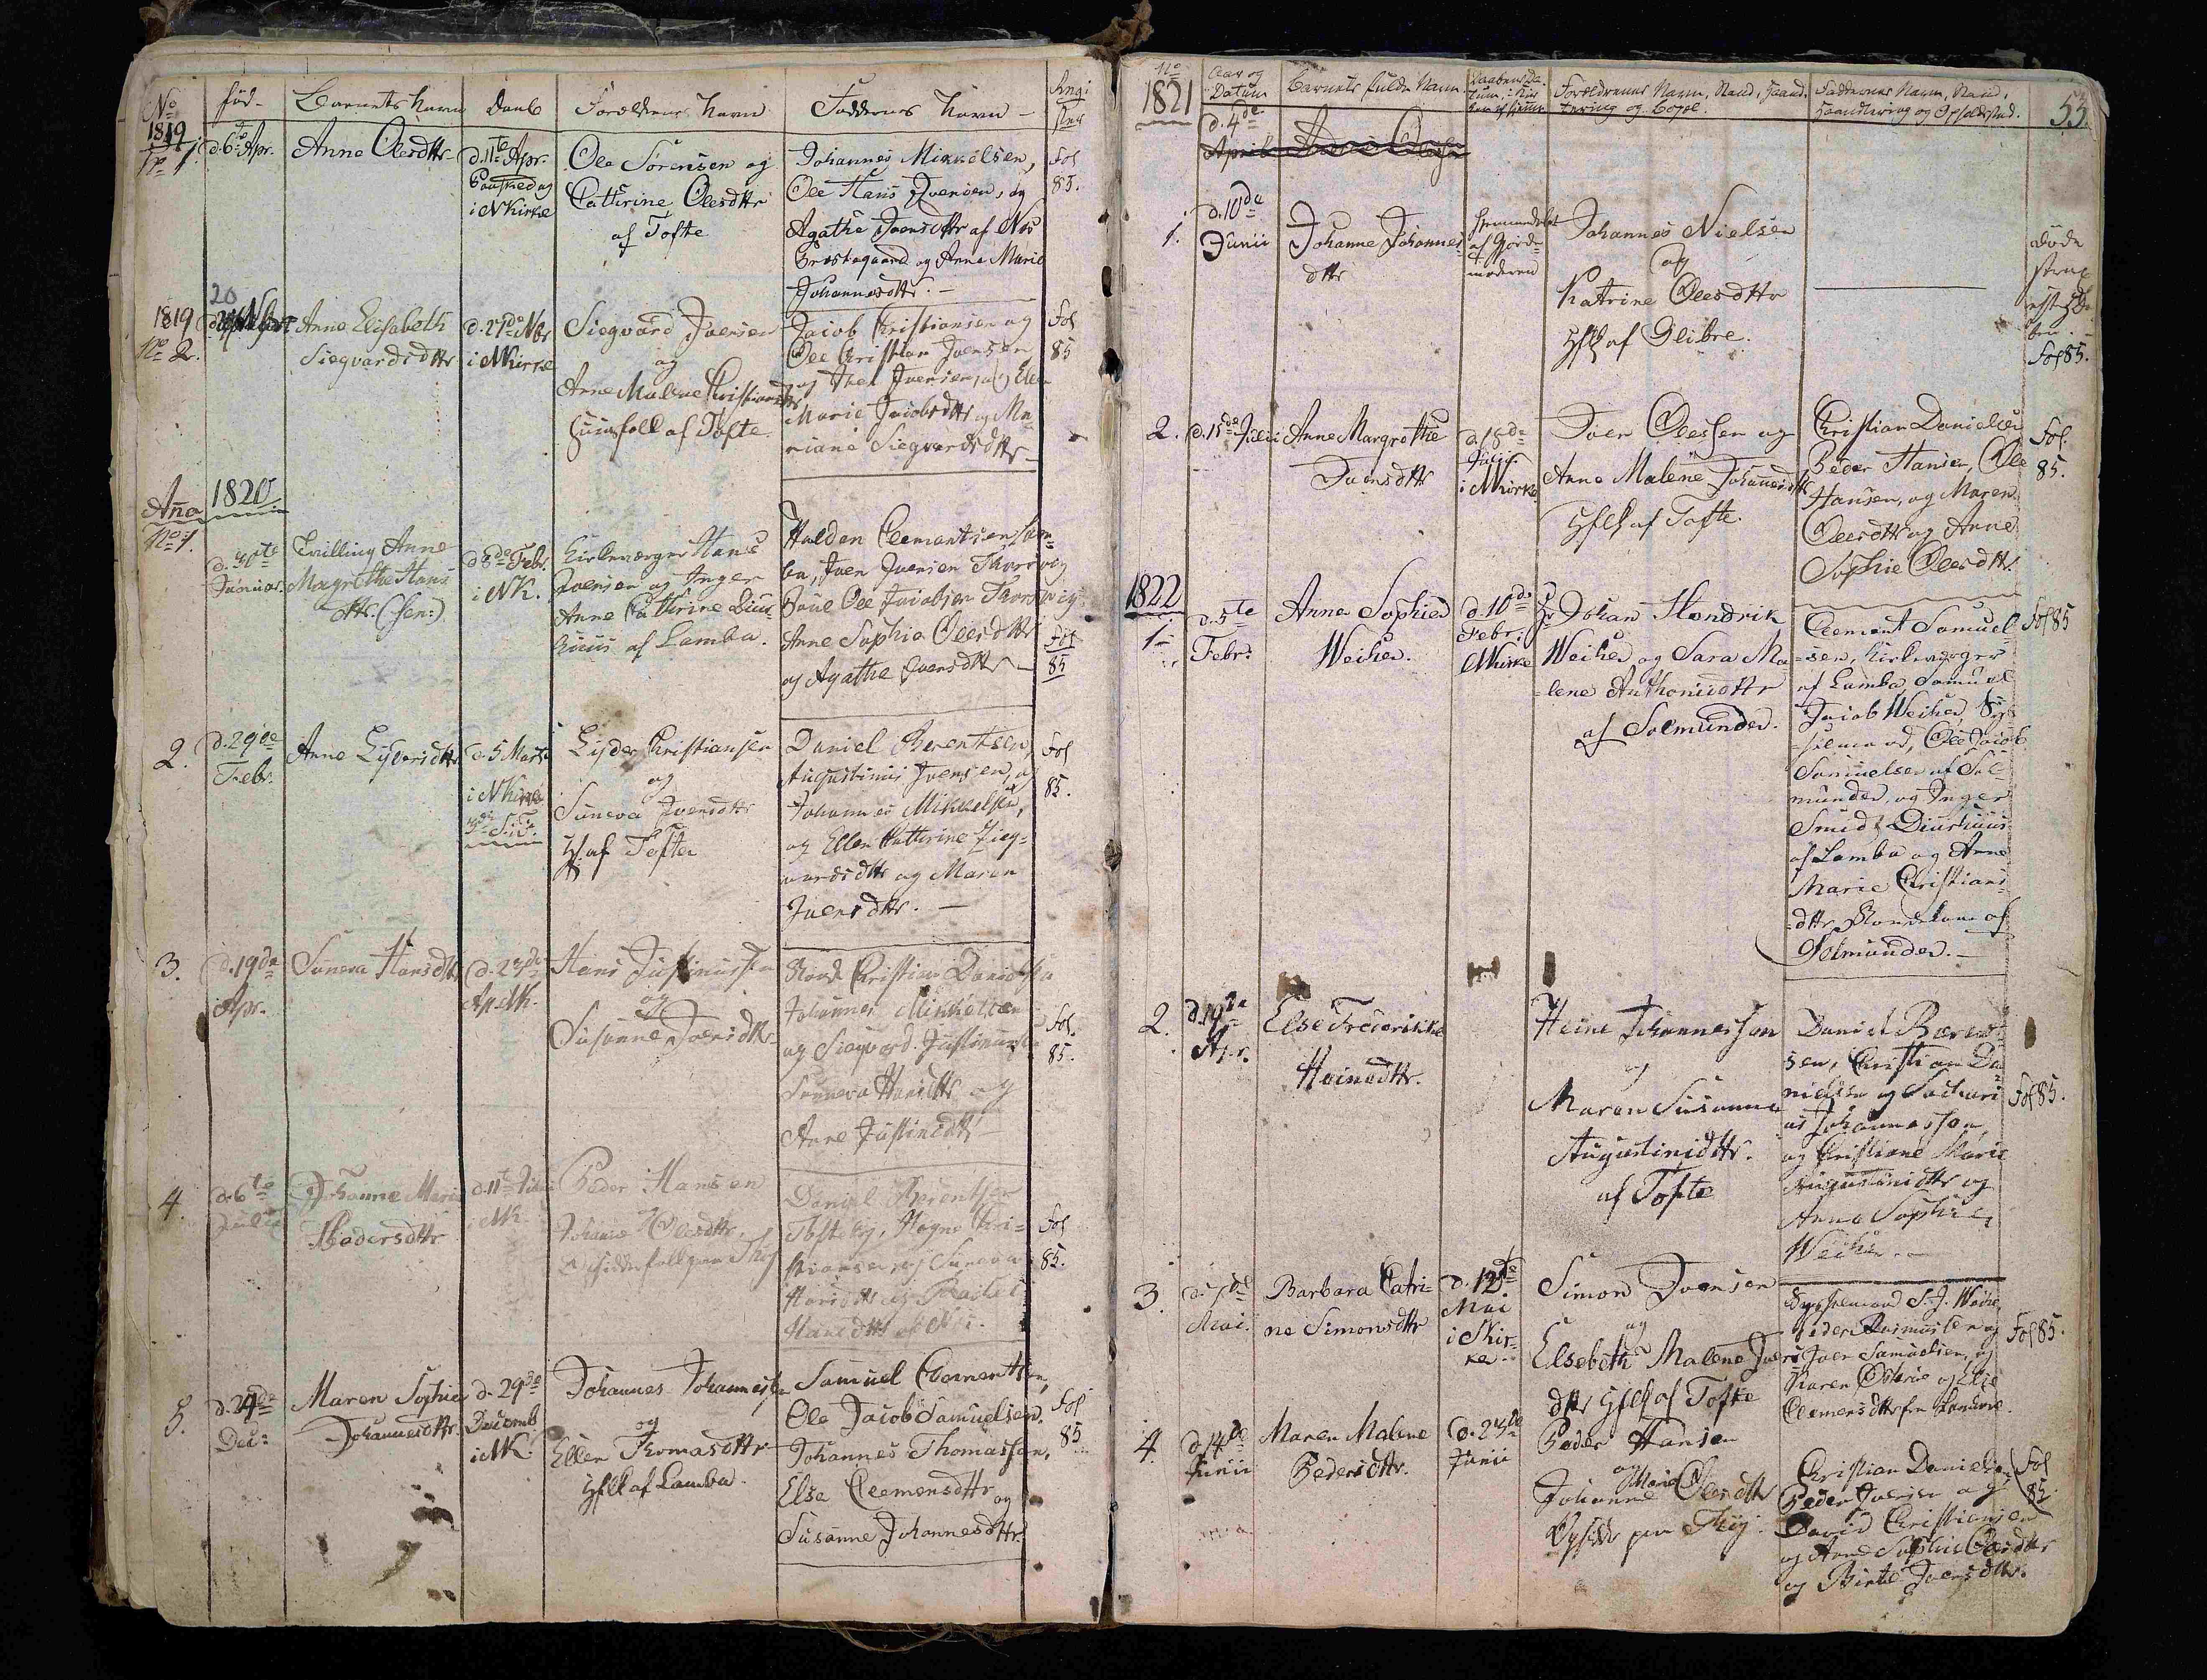 No
Fød-
Barnets Navn
Daab
Forældrenes Navn
Faddernes Navn
1819
No 1.
d. 6te Apr.
Anne Olesdttr
d. 11te Apr.
Paaskedag
i NKirke
Ole Sörensen og
Cathrine Olesdttr
af Tofte
Johannes Mikkelsen,
Ole Hans Joensen, og
Agathe Joensdttr af Nes
Præstegaard og Anne Marie
Johannesdttr. -
Fol
85.
1819
No 2.
20
Anne Elisabeth
Siegvardsdttr
d. 27de Nbr
i NKirke
Siegvard Joensen
og
Anne Malene Christiansdttr
Huusfolk af Tofte.
Jacob Christiansen og
Ole Christian Joensen
Joensen, og Ellen
Marie Jacobsdttr og Ma-
riane Siegvardsdttr -
Fol
85
Año 1820
No 1.
d. 30te
Januar.
Tvilling Anne
Magrethe Hans
dttr. (sen:)
d 8de Febr.
i NK.
Kirkeværger Hans
Joensen og Inger
Anne Cathrine Diur-
huus af Lamba.
Halden Clementsen Lam-
ba, Joen Joensen
Ole Jacobsen
Anne Sophie Olesdttr
og Agathe Joensdttr -
Fol
85
2.
d. 29de
Febr.
Anne Lydersdttr
d. 5 Marti
i NKirke
Lyder Christiansen
og
Suneva Joensdttr
Hf. af Tofte
Daniel Berentsen,
Augustinus Joensen, og
Johannes Mikkelsen,
og Ellen Cathrine Sieg-
vardsdttr og Maren
Joensdttr. -
Fol
85.
3.
d. 19de
Apr.
Suneva Hansdttr
d. 23de
Ap. NK.
Hans Justinussen
og
Susanne Joensdttr
Christian Danielsen
Johannes Mikkelsen
og Siegvard Justinussen
Suneva Hansdttr og
Anne Justinidttr -
Fol.
85.
4.
d. 6te
Julii
Johanne Marie
Pedersdttr
d. 11te Julii
i NK
Peder Hansen
Johanne Olesdttr.
Daniel Berentsen
Tofte og Hogne Chri-
stiansen og Suneva
Hansdttr og Rachel
Hansdttr af Nes.
Fol
85.
5.
d. 24de
Dec:
Maren Sophie
Johannesdttr.
d. 29de
Decemb
i NK.
Johannes Johannesen
og
Ellen Thomasdttr
Hflk af Lamba.
Samuel Clementsen,
Ole Jacob Samuelsen.
Johannes Thomassen,
Elsa Clemensdttr og
Susanne Johannesdttr.
Fol
85
No
1821
Aar og
Datum
Barnets fulde Navn
Forældrenes Navn, Stand, Haand-
tering og Bopæl.
Faddernes Navn, Stand,
Haandtering og Opholdsted.
55.
d. 4de
April
1.
d. 10de
Junii
Johanne Johannes
dttr
hiemmedøbt
af Gjorde-
moderen
Johannes Nielsen
og
Katrine Olesdttr
Hflk af Glibre.
døde
strax
Fol 85.
2.
d. 15de Julii
Anne Margrethe
Joensdttr
d. 18de
Julii
i NKirke
Joen Olessen og
Anne Malene Johannesdttr
Hflk af Tofte.
Christian Danielsen
Peder Hansen, Ole
Hansen, og Maren
Olesdttr og Anne
Sophie Olesdttr.
Fol.
85.
1822
1
d. 5te
Febr:
Anna Sophie
Weihe.
d. 10de
Febr:
NKirke
Hr Johan Hendrik
Weihe og Sara Ma-
lene Anthonisdttr
af Solmunde.
Clement Samuel-
sen, Kirkeværger
af Lamba, Samuel
Jacob Weihe, Sys-
selmand, Ole Jacob
Samuelsen af Sol-
munde, og Inger
Smid Diurhuus
af Lamba og Anne
Marie Christians-
dttr Bondekone af
Solmunde. -
Fol 85
2.
d. 19de
Apr.
Else Frederikke
Heinesdttr.
Heine Johannessen
og
Maren Susanna
Augustinidttr.
af Tofte
Daniel Berent-
sen, Christian Da-
nielsen og Sachari-
as Johannessen,
og Christiane Marie
Augustinidttr og
Anne Sophie
Weihe. -
Fol 85.
3.
d. 7de
Mai.
Barbara Catri-
ne Simonsdttr
d. 12te
Mai
i Kir-
ke.
Simon Joensen
og
Elsebeth Malene Joens
dttr Hflk af Tofte
Sysselmand S. J. Weihe,
Peder Rasmussen og
Joen Samuelsen, og
Karen Olsdttr og Else
Clemensdttr fra Lambe.
Fol 85.
4.
d 14de
Junii
Maren Malene
Pedersdttr.
d. 23de
Junii
Peder Hansen
og
Johanne Marie Olesdttr
Christian Danielsen
Peder Joensen og
David Christiansen
og Anne Sophie Olesdttr
og Birte Joensdttr.
Fol
85